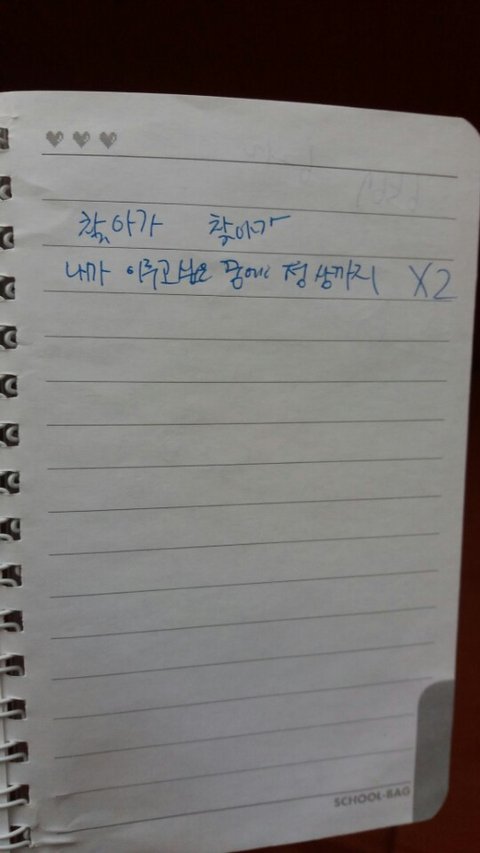 찾아가 찾아가
내가 이루고 싶은 꿈에 정상까지 X2
SCHOOL-BAG